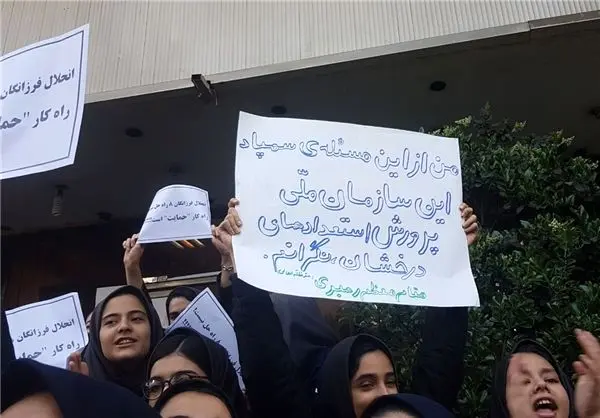 انحلال فرزانگان
راه کار "حما
انحلال فرزانگان ۸ راه حل
راه کار "حمایت" است!!!
من از این مسئله‌ی سمپاد
این سازمان ملّی
پرورش استعدادهای
درخشان، نگرانم.
مقام معظم رهبری
انحلال فرزانگان ۸
راه کار "حمای
راه حل نیست